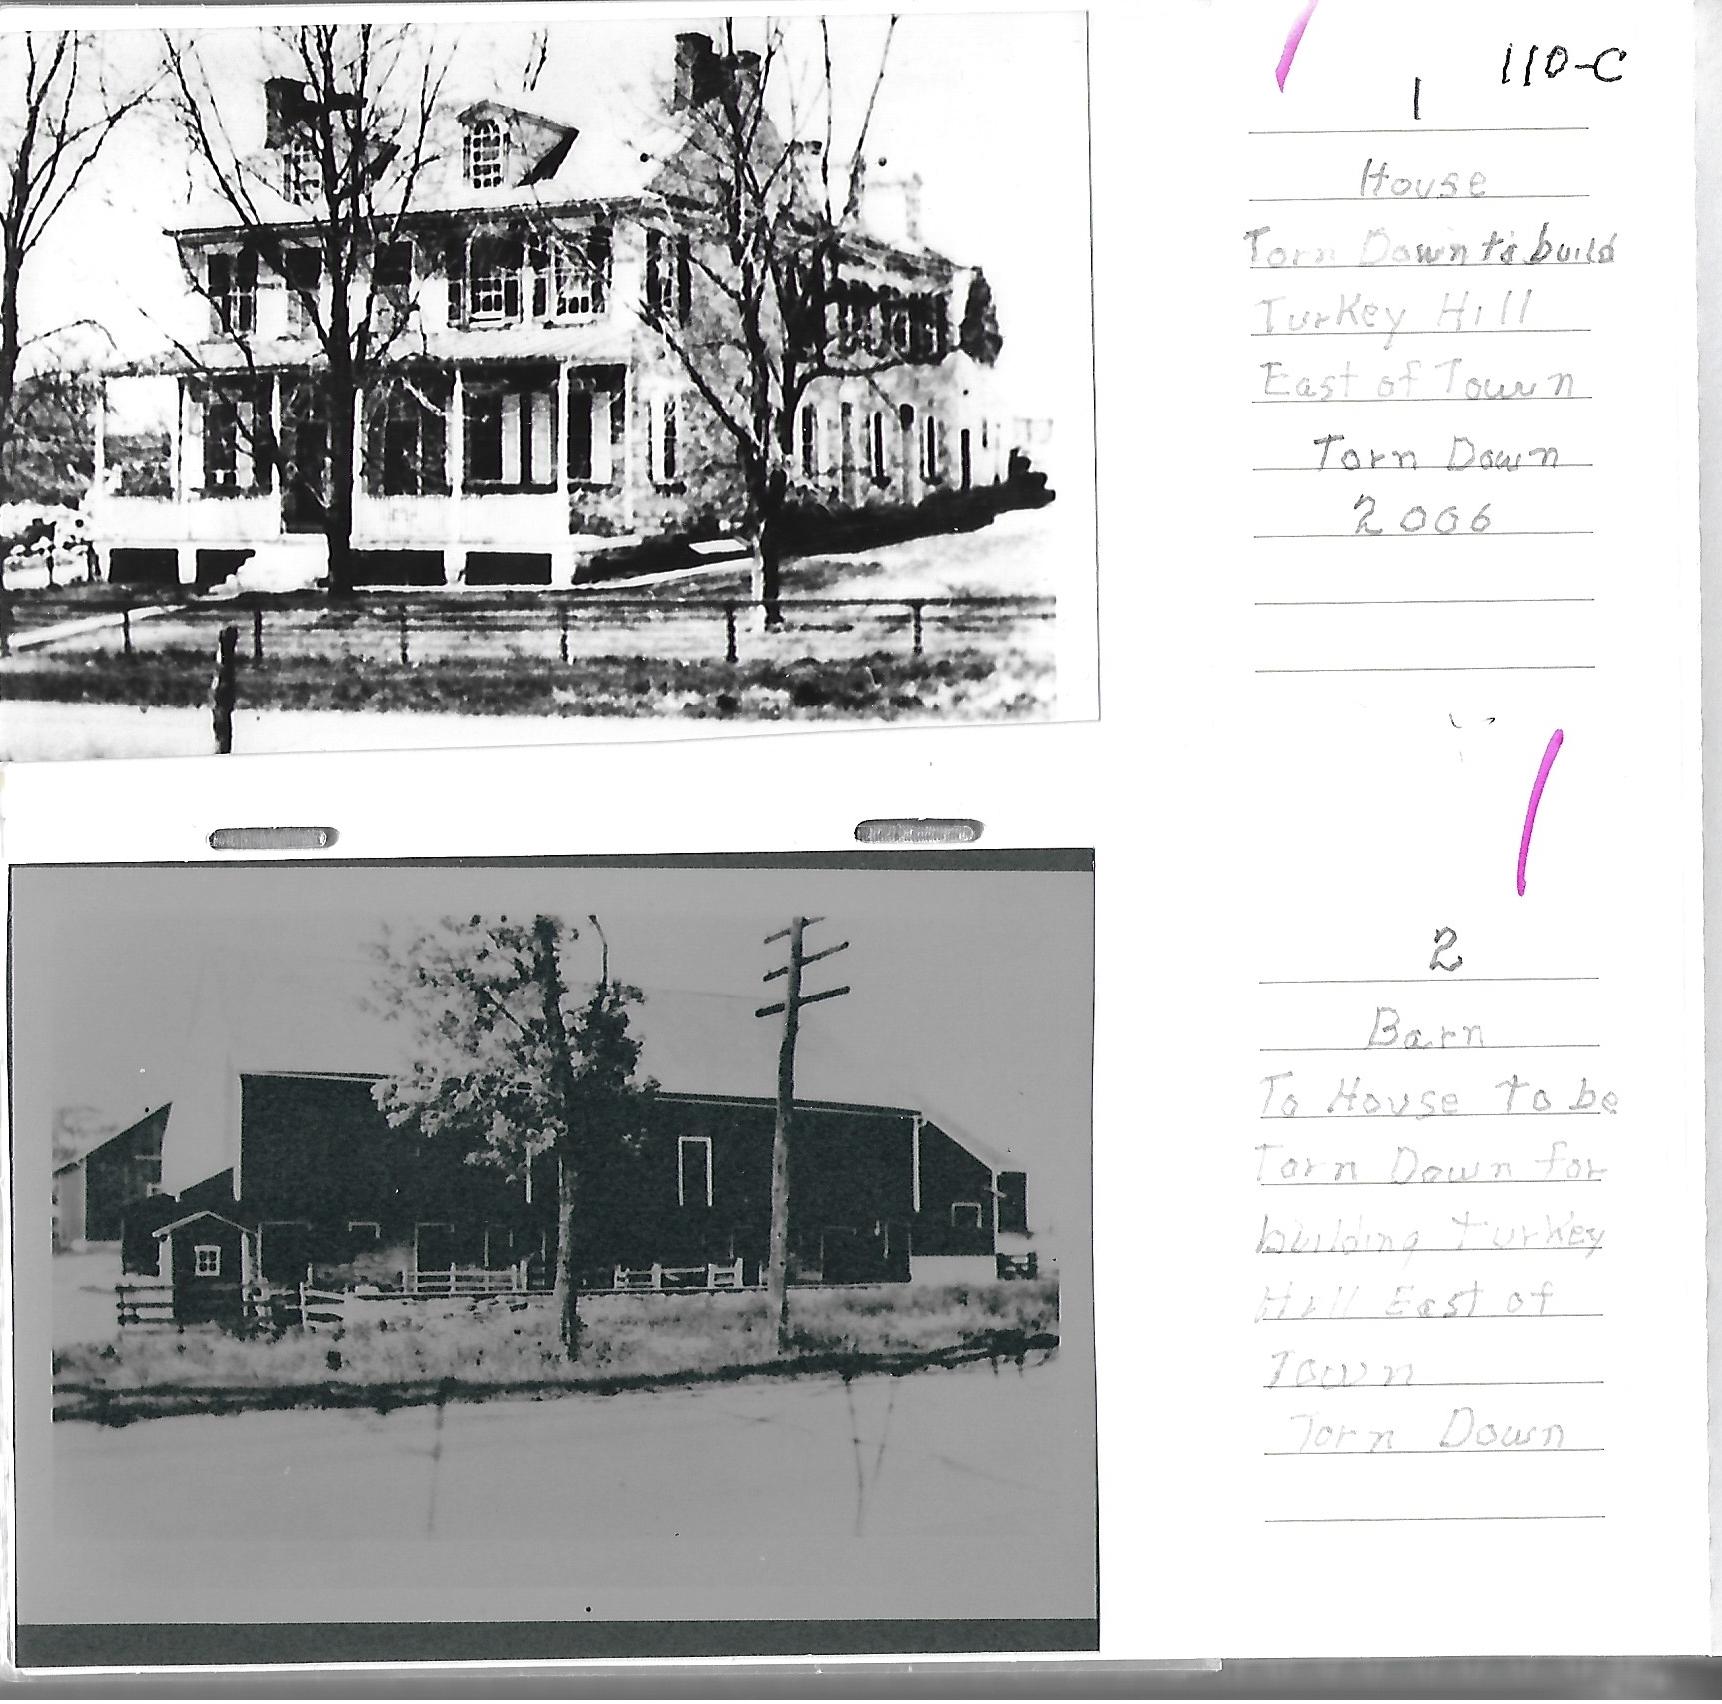 110-C
1
House
Torn Down to build
Turkey Hill
East of Town
Torn Down
2006
2
Barn
To House to be
Torn Down for
building Turkey
Hill East of
Town
Torn Down